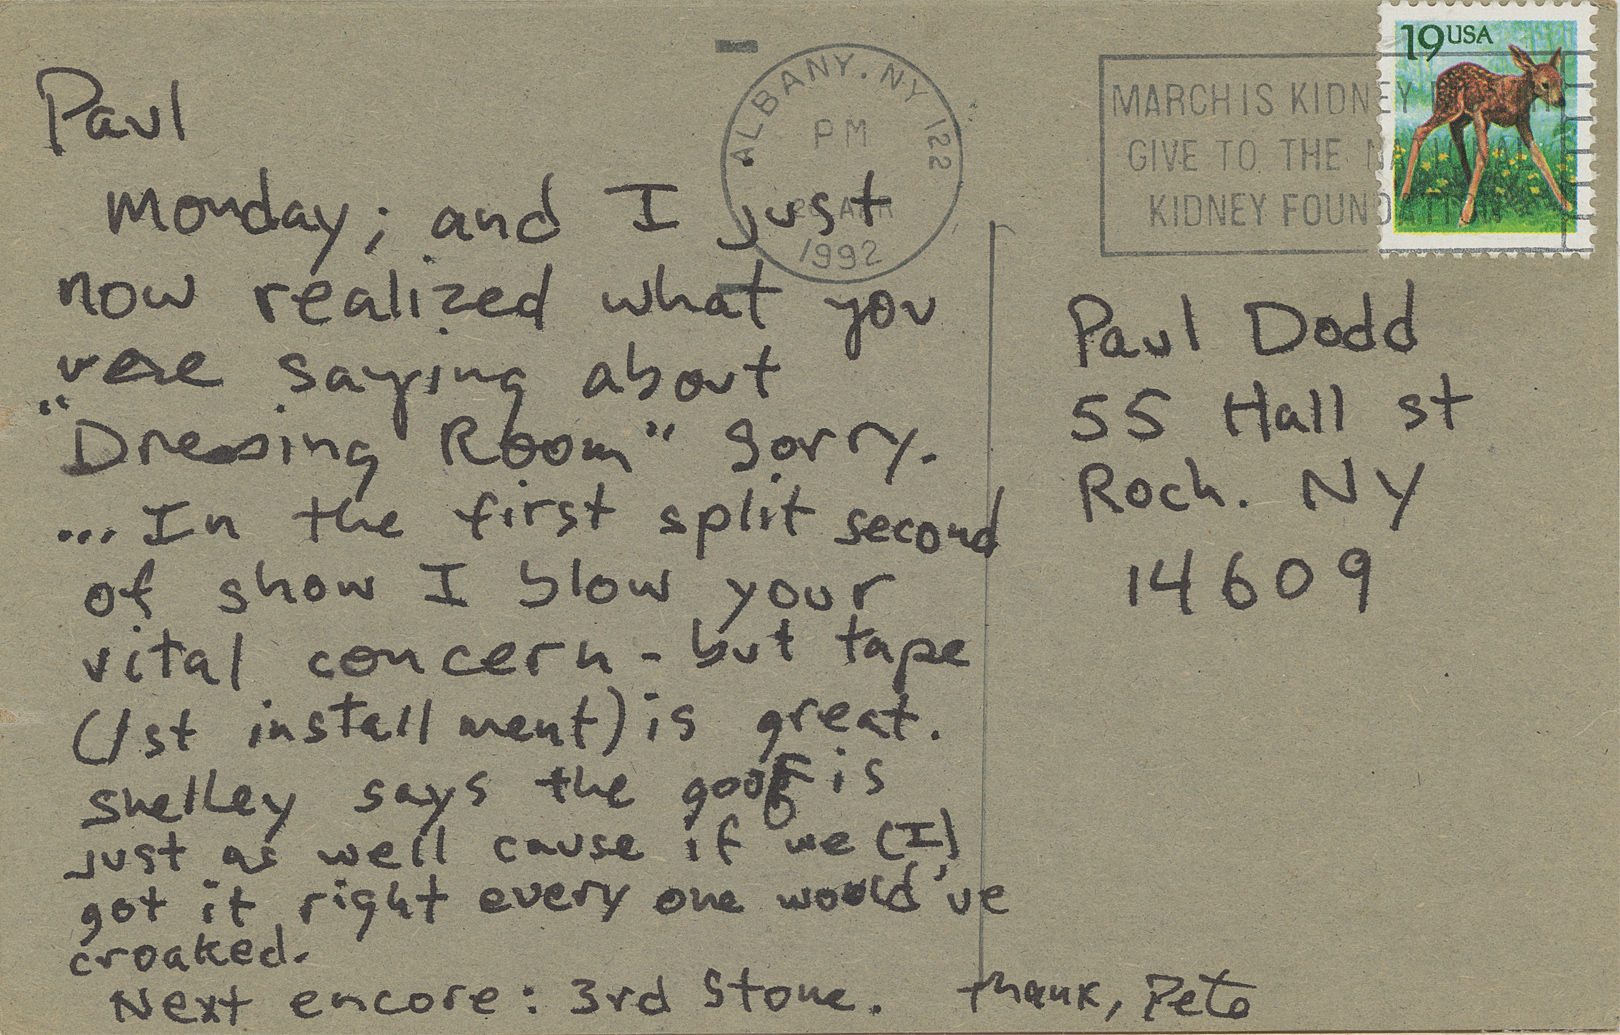 Paul
Monday; and I just
now realized what you
were saying about
"Dressing Room" Sorry.
... In the first split second
of show I blow your
vital concern - but tape
(1st installment) is great.
Shelley says the goof is
just as well cause if we (I)
got it right every one would've
croaked.
Next encore: 3rd Stone. Thank, Pete
ALBANY, NY 122
PM
APR
1992
MARCH IS KIDNEY
GIVE TO THE NATIONAL
KIDNEY FOUNDATION
19 USA
Paul Dodd
55 Hall st
Roch. NY
14609